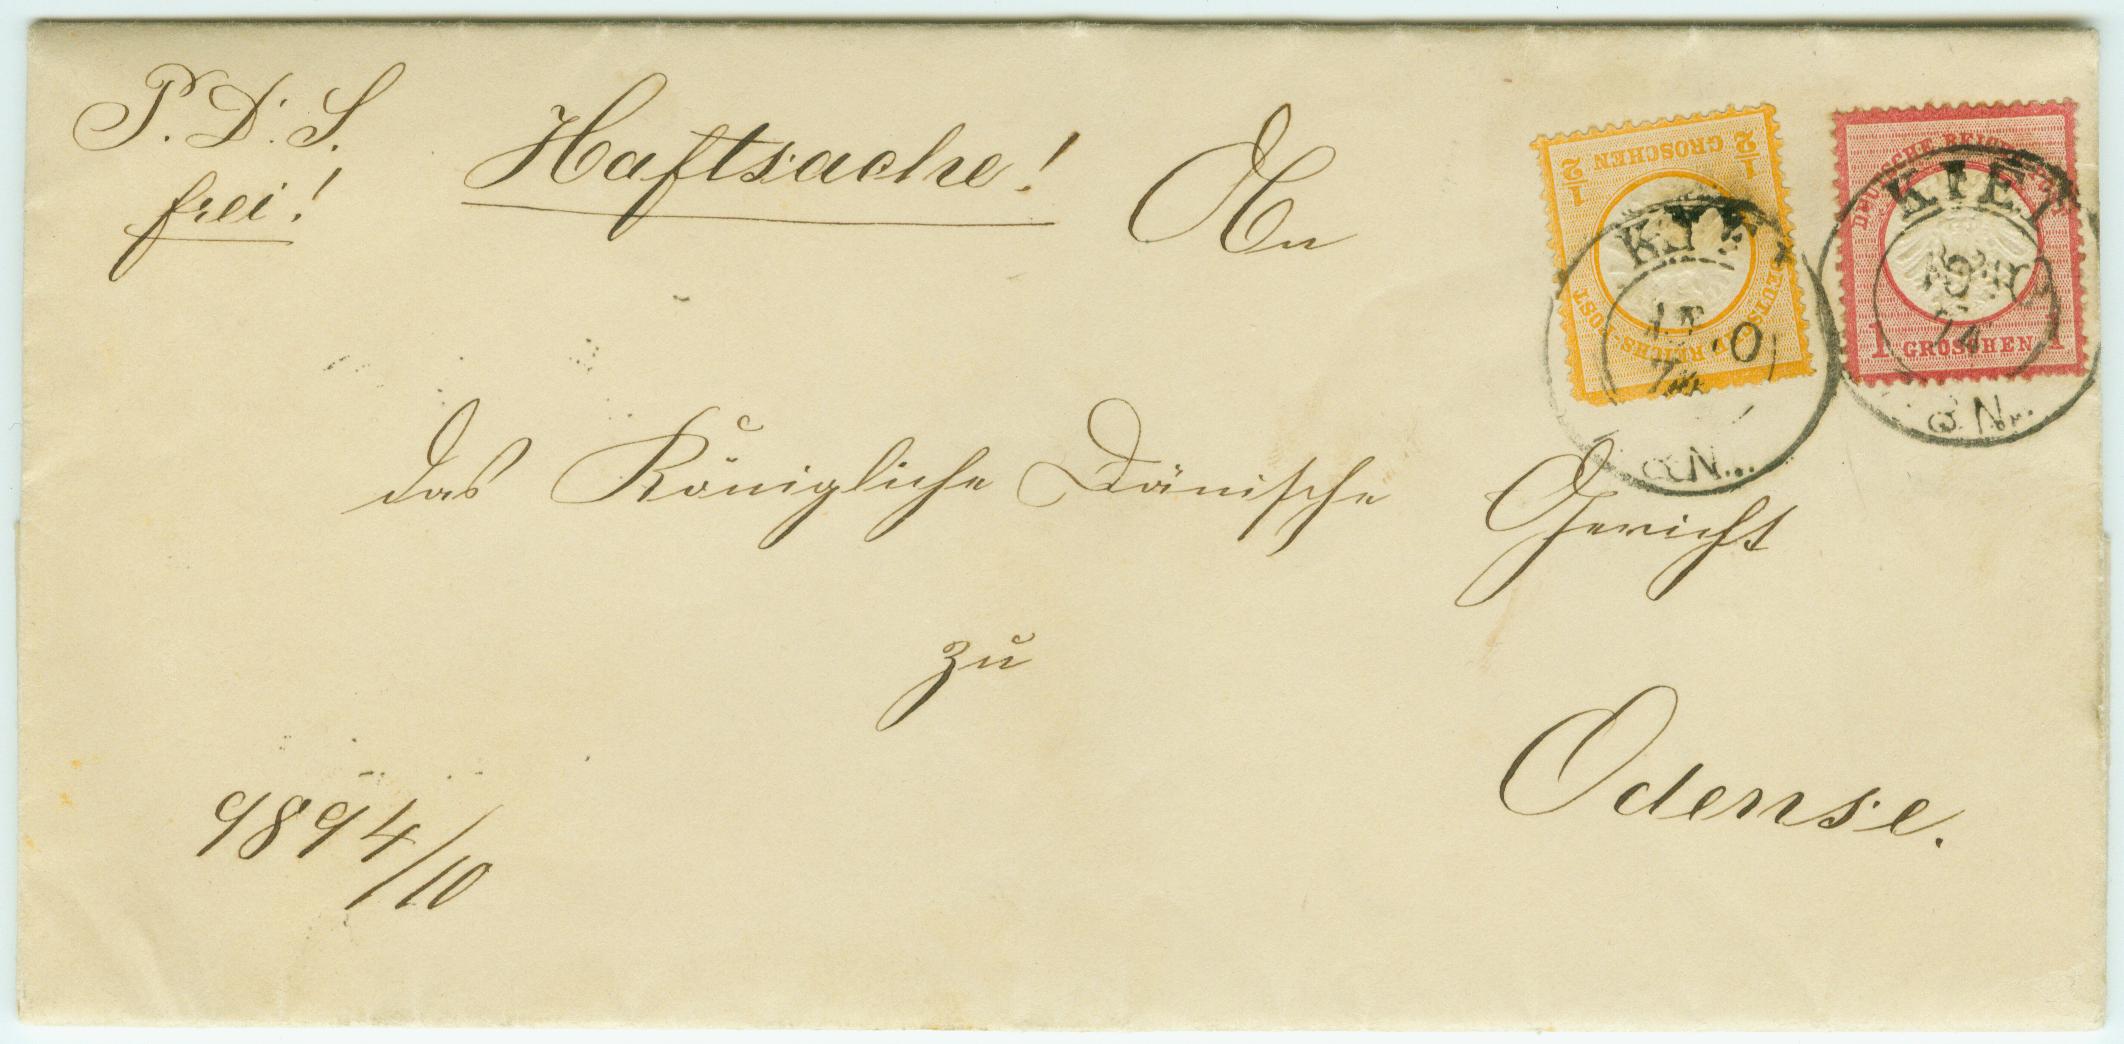 P. D. S.
frei!
Haftsache!
An
das Königliche Dänische Gericht
zu
Odense.
9894/10
1/2 GROSCHEN 1/2
DEUTSCHE REICHS-POST
DEUTSCHE REICHS-POST
1 GROSCHEN 1
KIEL
KIEL